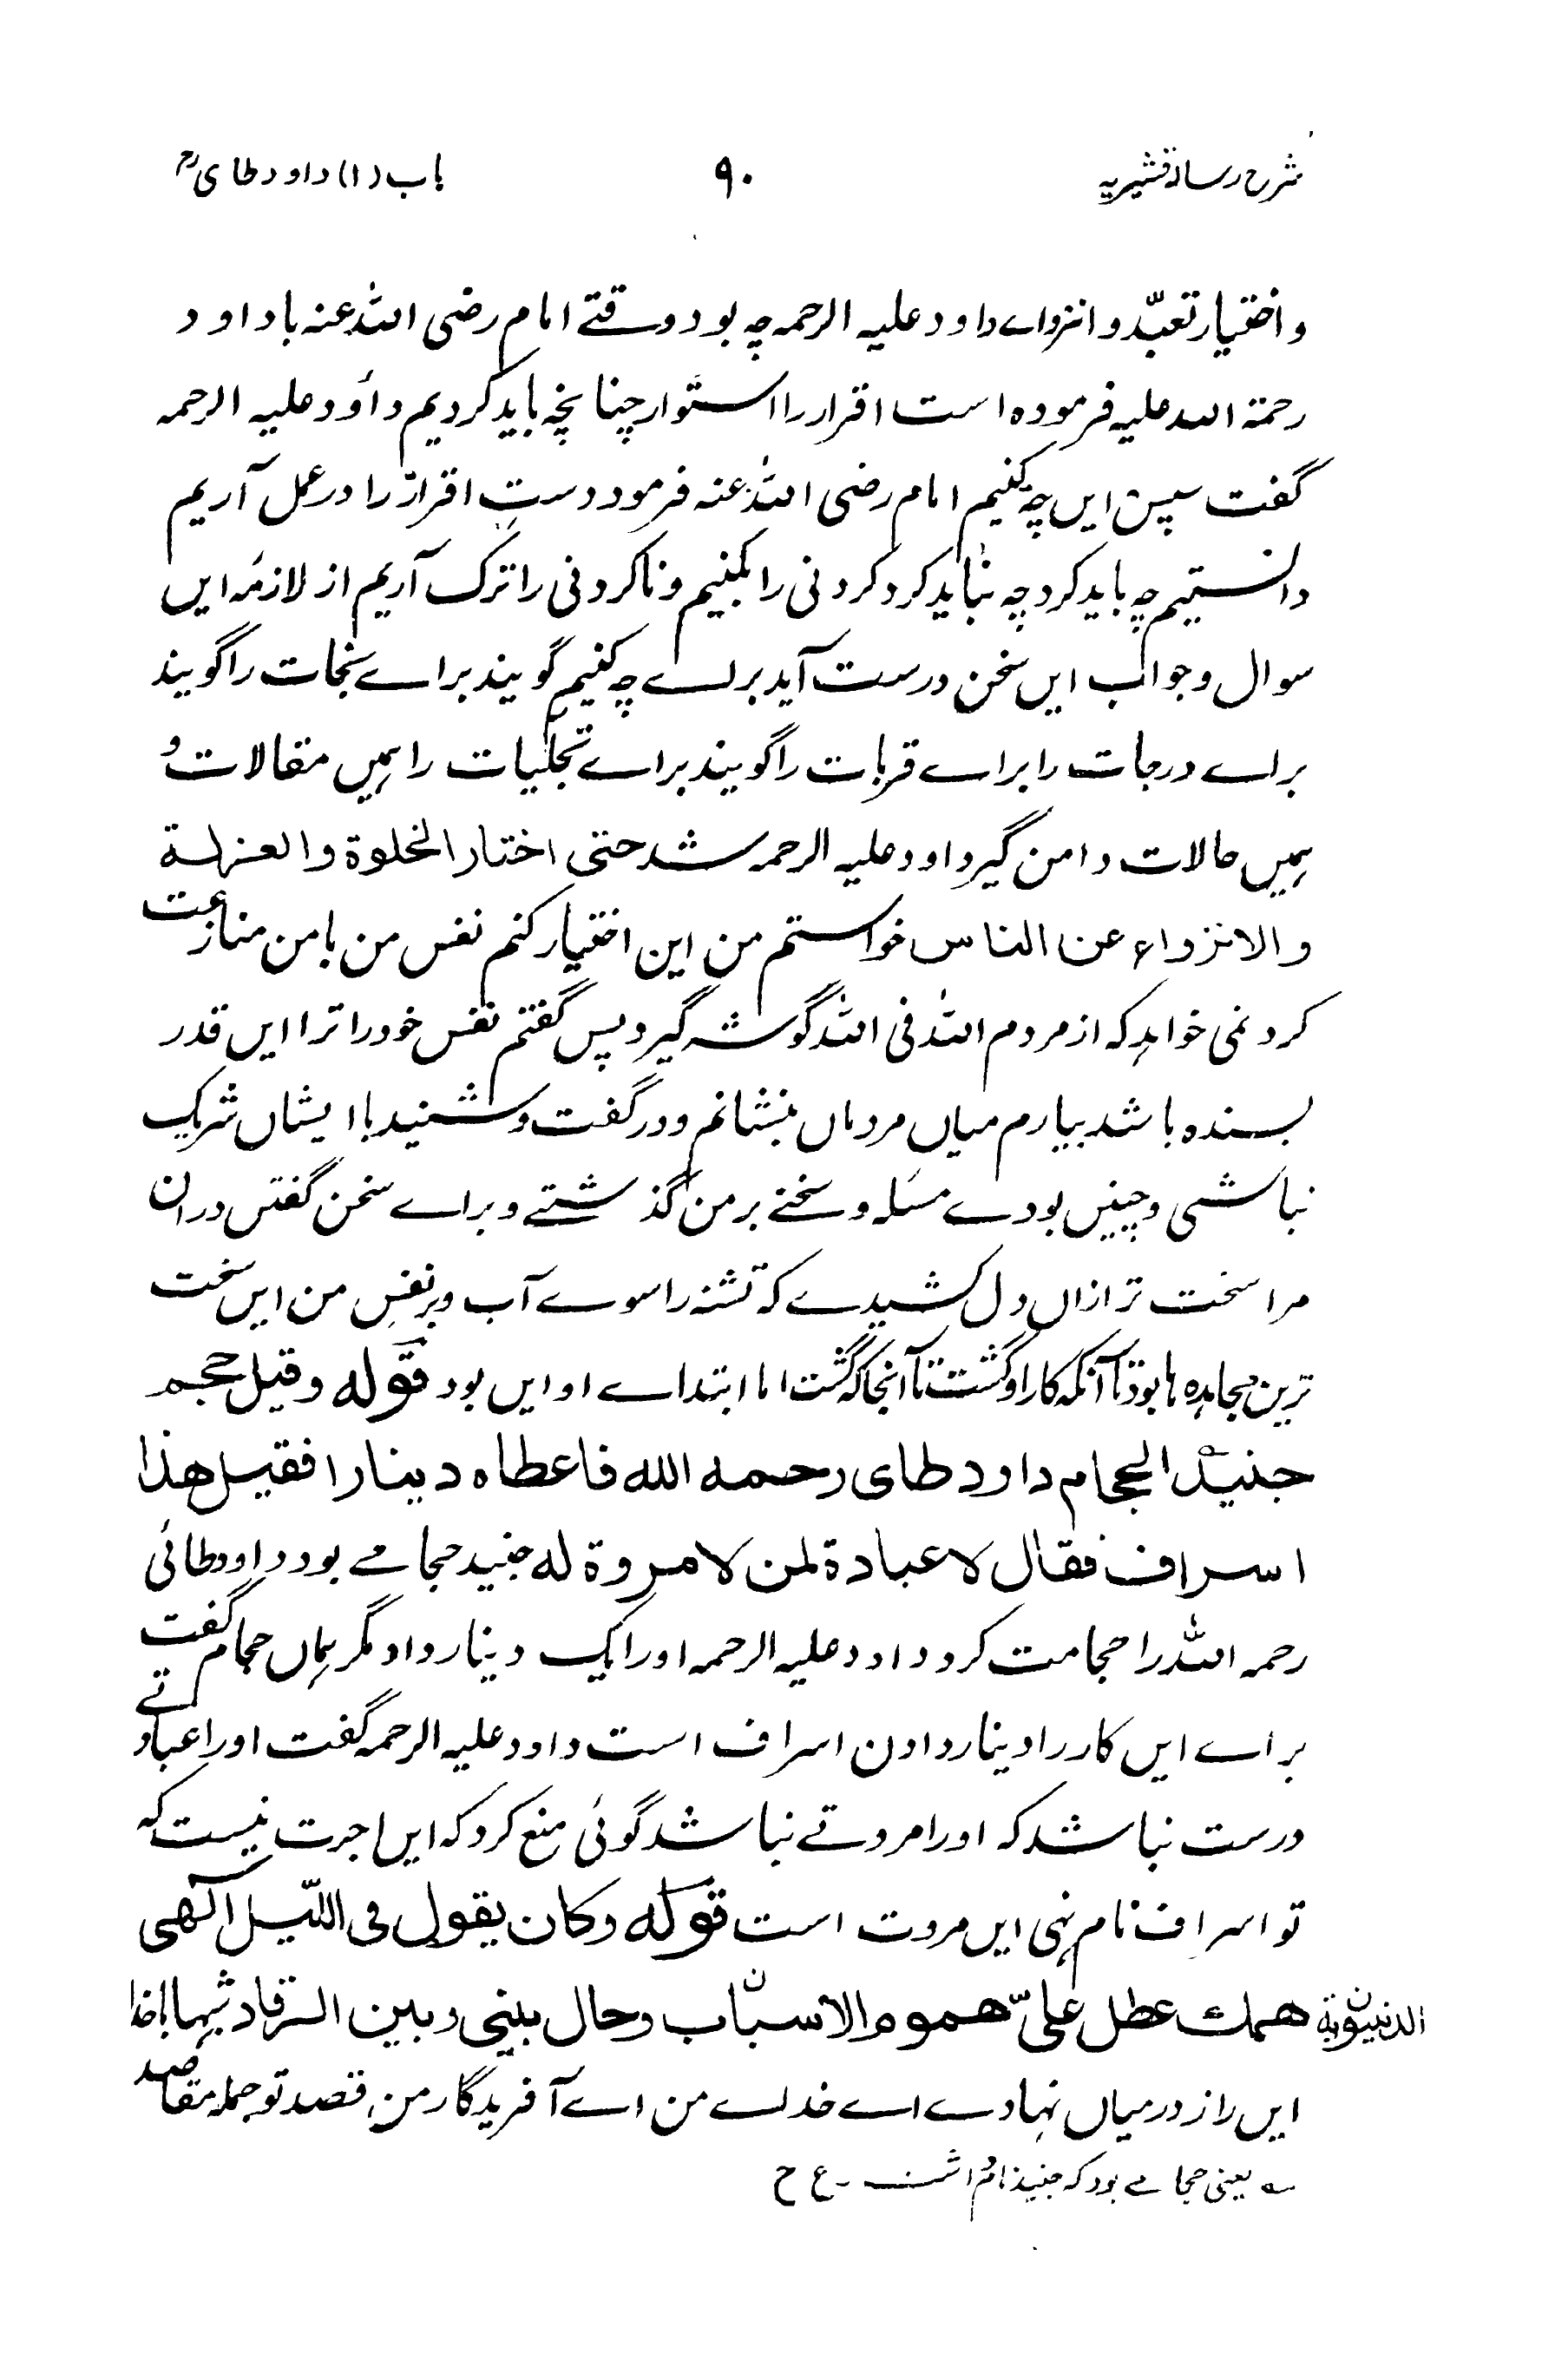 شرح رسالۂ قشیریہ ۹۰ باب (۱) داود طای رح
و اختیار تعبّد و انزواے داود علیہ الرحمہ چہ بود وقتے امام رضی اللہ عنہ با داود
رحمۃ اللہ علیہ فرمودہ است اقرار را استوار چنانچہ باید کردیم داود علیہ الرحمہ
گفت سپس ایں چہ کنیم امام رضی اللہ عنہ فرمود دست اقرار را در عمل آریم
دانستیم چہ باید کرد چہ نباید کرد کردنی را بکنیم و ناکردنی را ترک آریم از لازمہ ایں
سوال و جواب ایں سخن درست آید براے چہ کنیم گویند براے نجات را گویند
براے درجات را براے قربات را گویند براے تجلیات را ہمیں مقالات و
ہمیں حالات دامن گیر داود علیہ الرحمہ شد حتی اختار الخلوۃ والعزلۃ
والانزواء عن الناس خواستم من این اختیار کنم نفس من با من منازعت
کرد نمی خواہد کہ از مردم اللہ فی اللہ گوشہ گیرد پس گفتم نفس خود را ترا ایں قدر
بسندہ باشد بیارم میاں مردماں بنشانم و در گفت و شنید با ایشاں شریک
نباشی و چنیں بودے مسئلہ و سخنے بر من گذشتے و براے سخن گفتن در ان
مرا سخت تر ازاں دل کشیدے کہ تشنہ را سوے آب و بر نفس من ایں سخت
ترین مجاہدہ ہا بود تا آنکہ کار او گشت تا آنجا کہ گشت اما ابتداے او ایں بود قولہ وقیل حجم
جنید الحجام داود طای رحمہ اللہ فاعطاہ دینارا فقیل ھذا
اسراف فقال لا عبادۃ لمن لا مروۃ لہ جنید حجامے بود داود طائی
رحمہ اللہ را حجامت کرد داود علیہ الرحمہ اورا یک دینار داد مگر ہماں حجام گفت
براے ایں کار را دینار دادن اسراف است داود علیہ الرحمہ گفت اورا عبادتے
درست نباشد کہ اورا مروتے نباشد گوئی منع کرد کہ ایں اجرت نیست کہ
تو اسراف نام نہی ایں مروت است قولہ وکان یقول فی اللّیل آلھی
ھمك عطل علیّ ھموم الاسباب وحال بینی وبین الرقاد
الدنیویۃ
ایں راز درمیاں نہادے اے خداے من اے آفریدگار من قصد تو جملہ مقاصد
؎ یعنی حجامے بود کہ جنید نام داشت ۔ ع ح